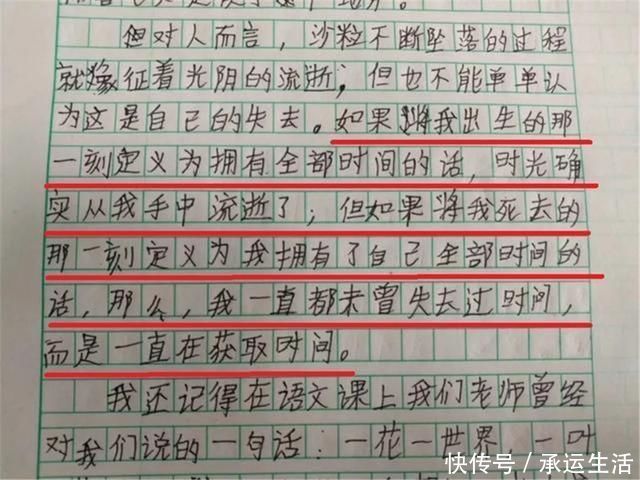 但对人而言，沙粒不断坠落的过程
就像征着光阴的流逝；但也不能单单认
为这是自己的失去。如果将我出生的那
一刻定义为拥有全部时间的话，时光确
实从我手中流逝了；但如果将我死去的
那一刻定义为我拥有了自己全部时间的
话，那么，我一直都未曾失去过时间，
而是一直在获取时间。
我还记得在语文课上我们老师曾经
对我们说的一句话：一花一世界，一叶
快传号／承运生活